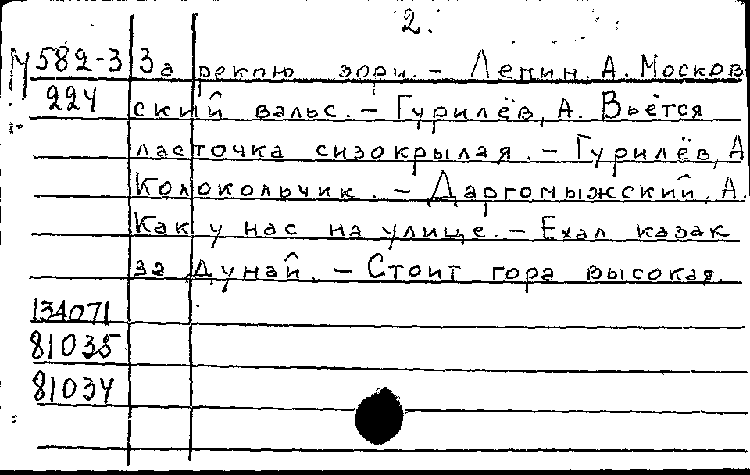 2.
М 582-3 За рекою зори. – Лепин, А. Москов
224 ский вальс. – Гурилёв, А. Вьётся
ласточка сизокрылая. – Гурилёв, А
Колокольчик. – Даргомыжский, А.
Как у нас на улице. – Ехал казак
за Дунай. – Стоит гора высокая.
134071
81035
81034